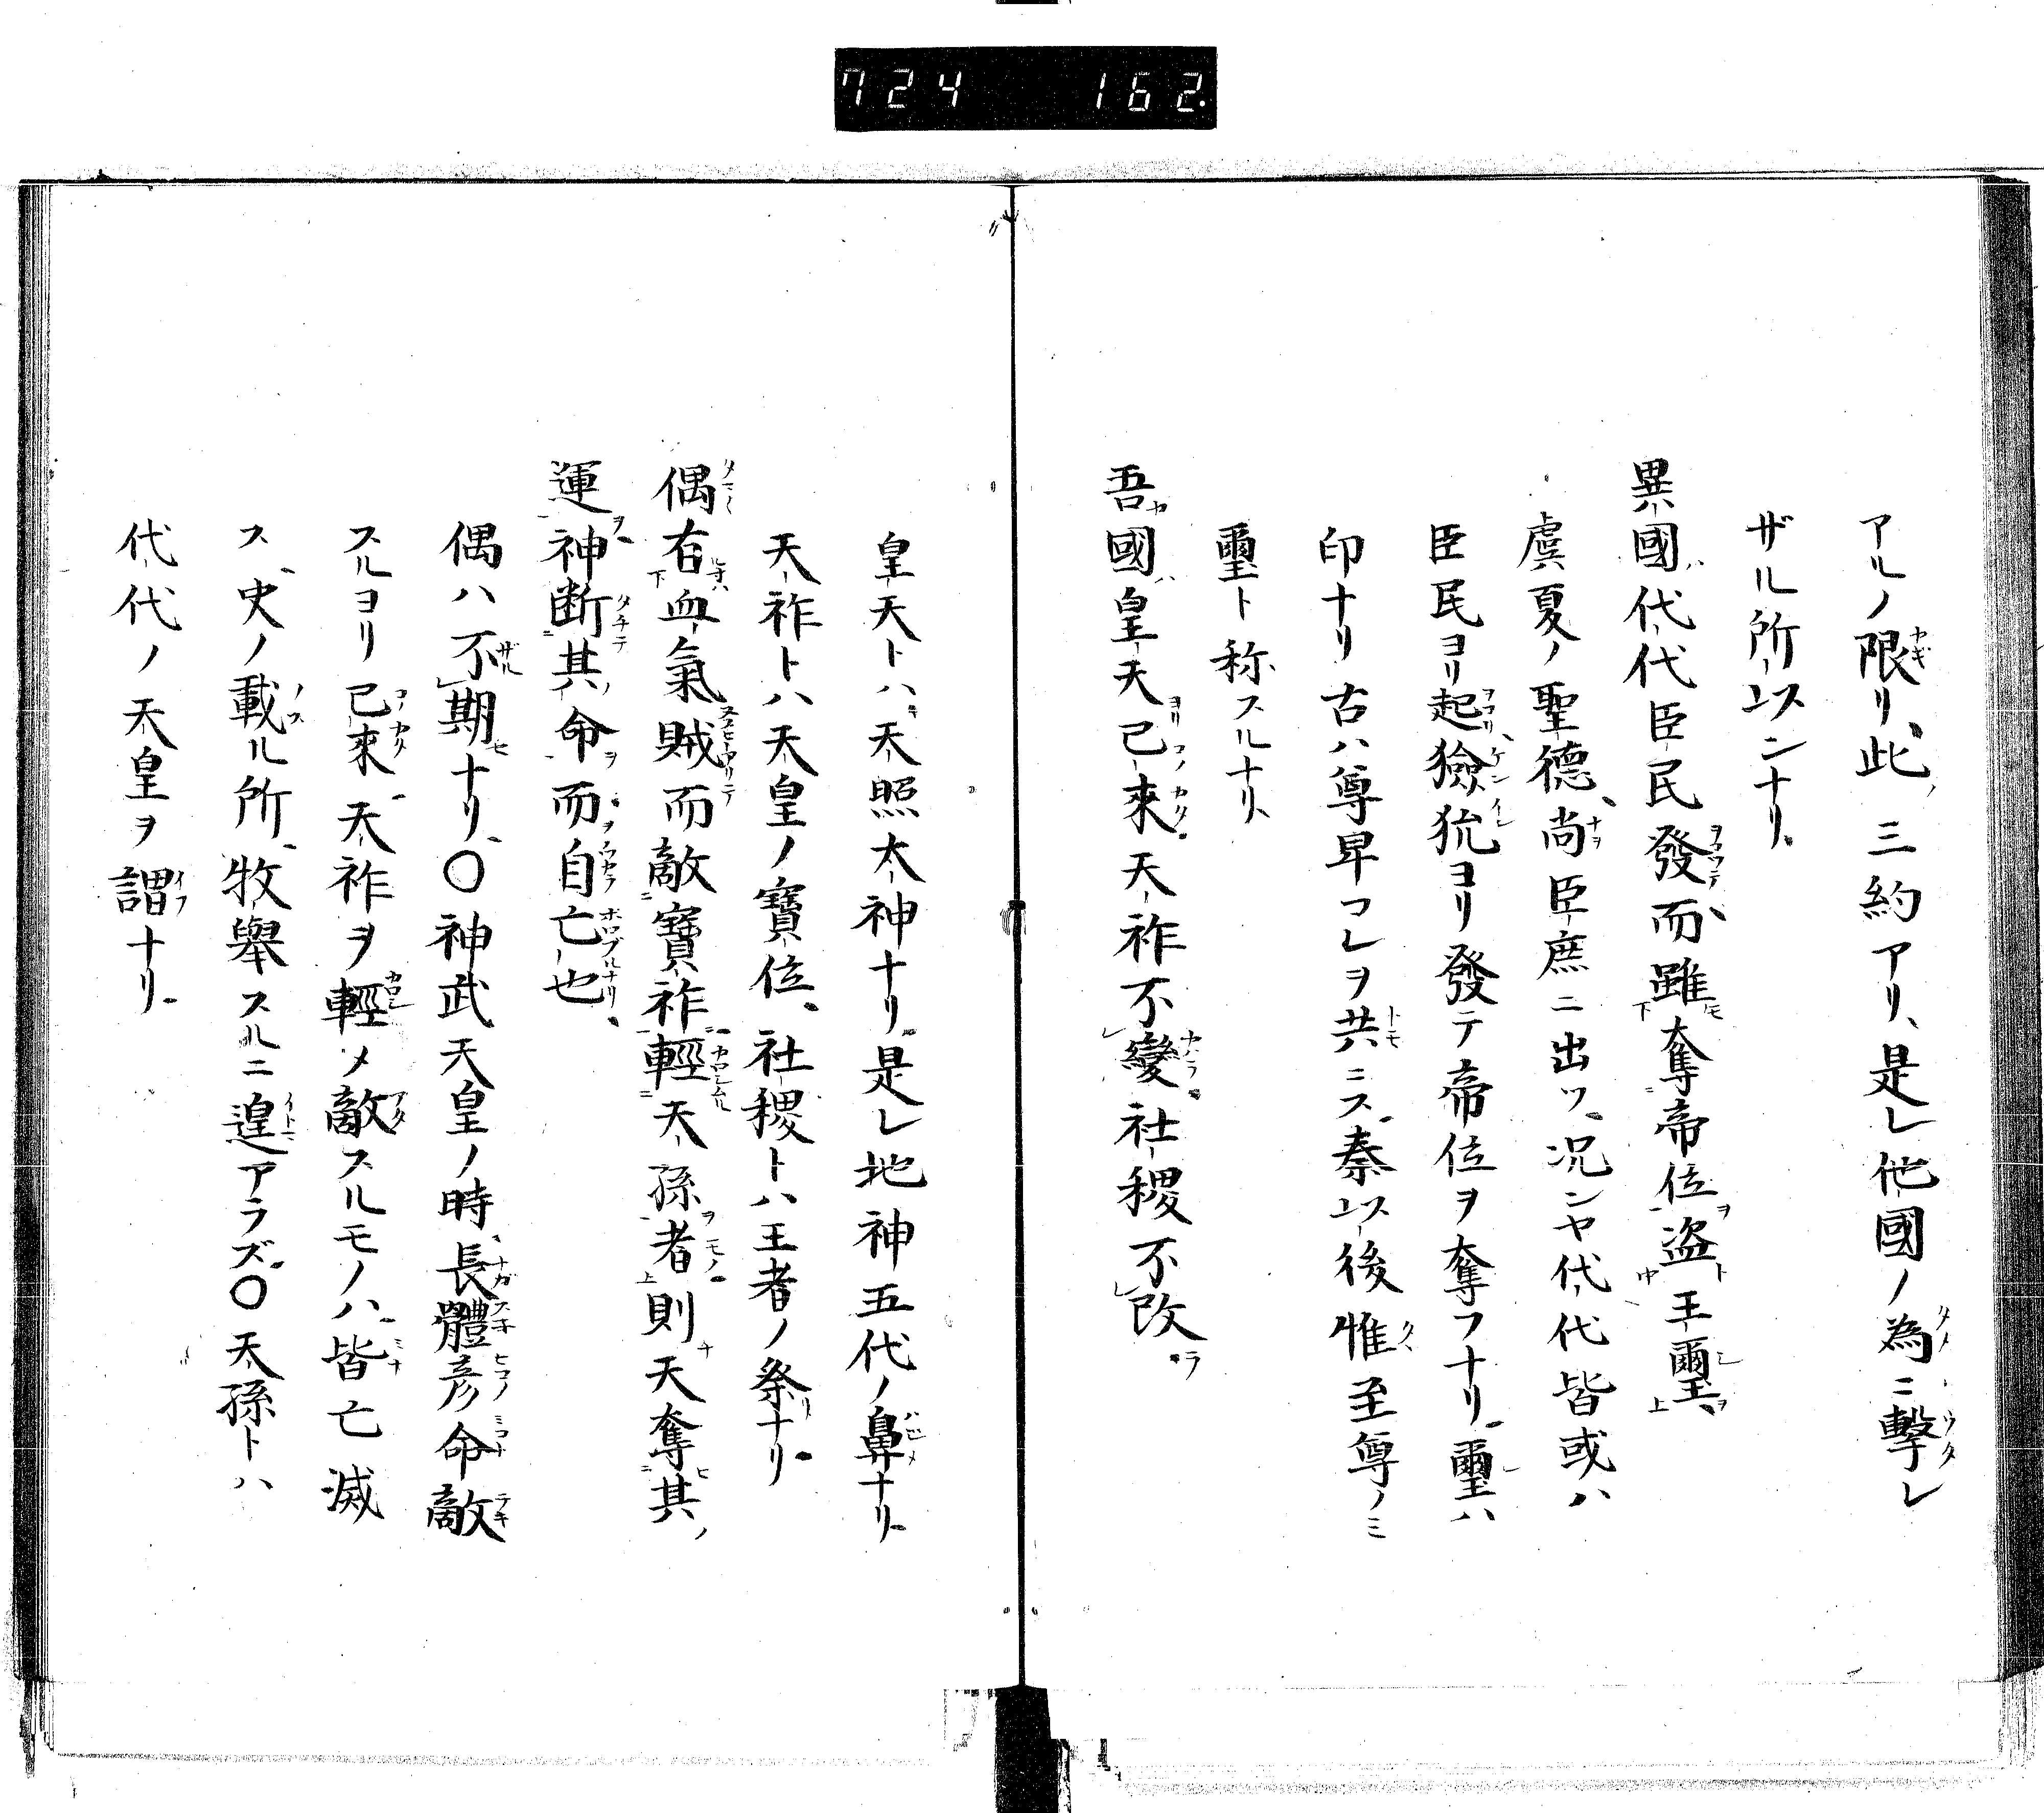 724 162.
アルノ限リ、此ノ三約アリ、是レ他國ノ為ニ撃レ
ザル所以ンナリ。
異國ハ代代臣民發而、雖奪帝位盗王璽ヲ
虞夏ノ聖德、尚臣庶ニ出ヅ、况ンヤ代代皆或ハ
臣民ヨリ起、獫狁ヨリ發テ帝位ヲ奪フナリ。璽ハ
印ナリ古ハ尊卑コレヲ共ニス、秦以後惟至尊ノミ
璽ト称スルナリ、
吾國ハ皇天已來。天祚不變。社稷不改。
皇天トハ、天照太神ナリ。是レ地神五代ノ鼻ナリ。
天祚トハ天皇ノ寶位、社稷トハ王者ノ祭ナリ。
偶有血氣賊而敵寶祚輕天孫者則天奪其ノ
運神断其命而自亡也。
偶ハ不期ナリ、〇神武天皇ノ時、長髓彦命敵
スルヨリ已來、天祚ヲ輕メ敵スルモノハ、皆亡滅
ス、史ノ載ル所、牧舉スルニ遑アラズ。〇天孫トハ
代代ノ天皇ヲ謂ナリ。